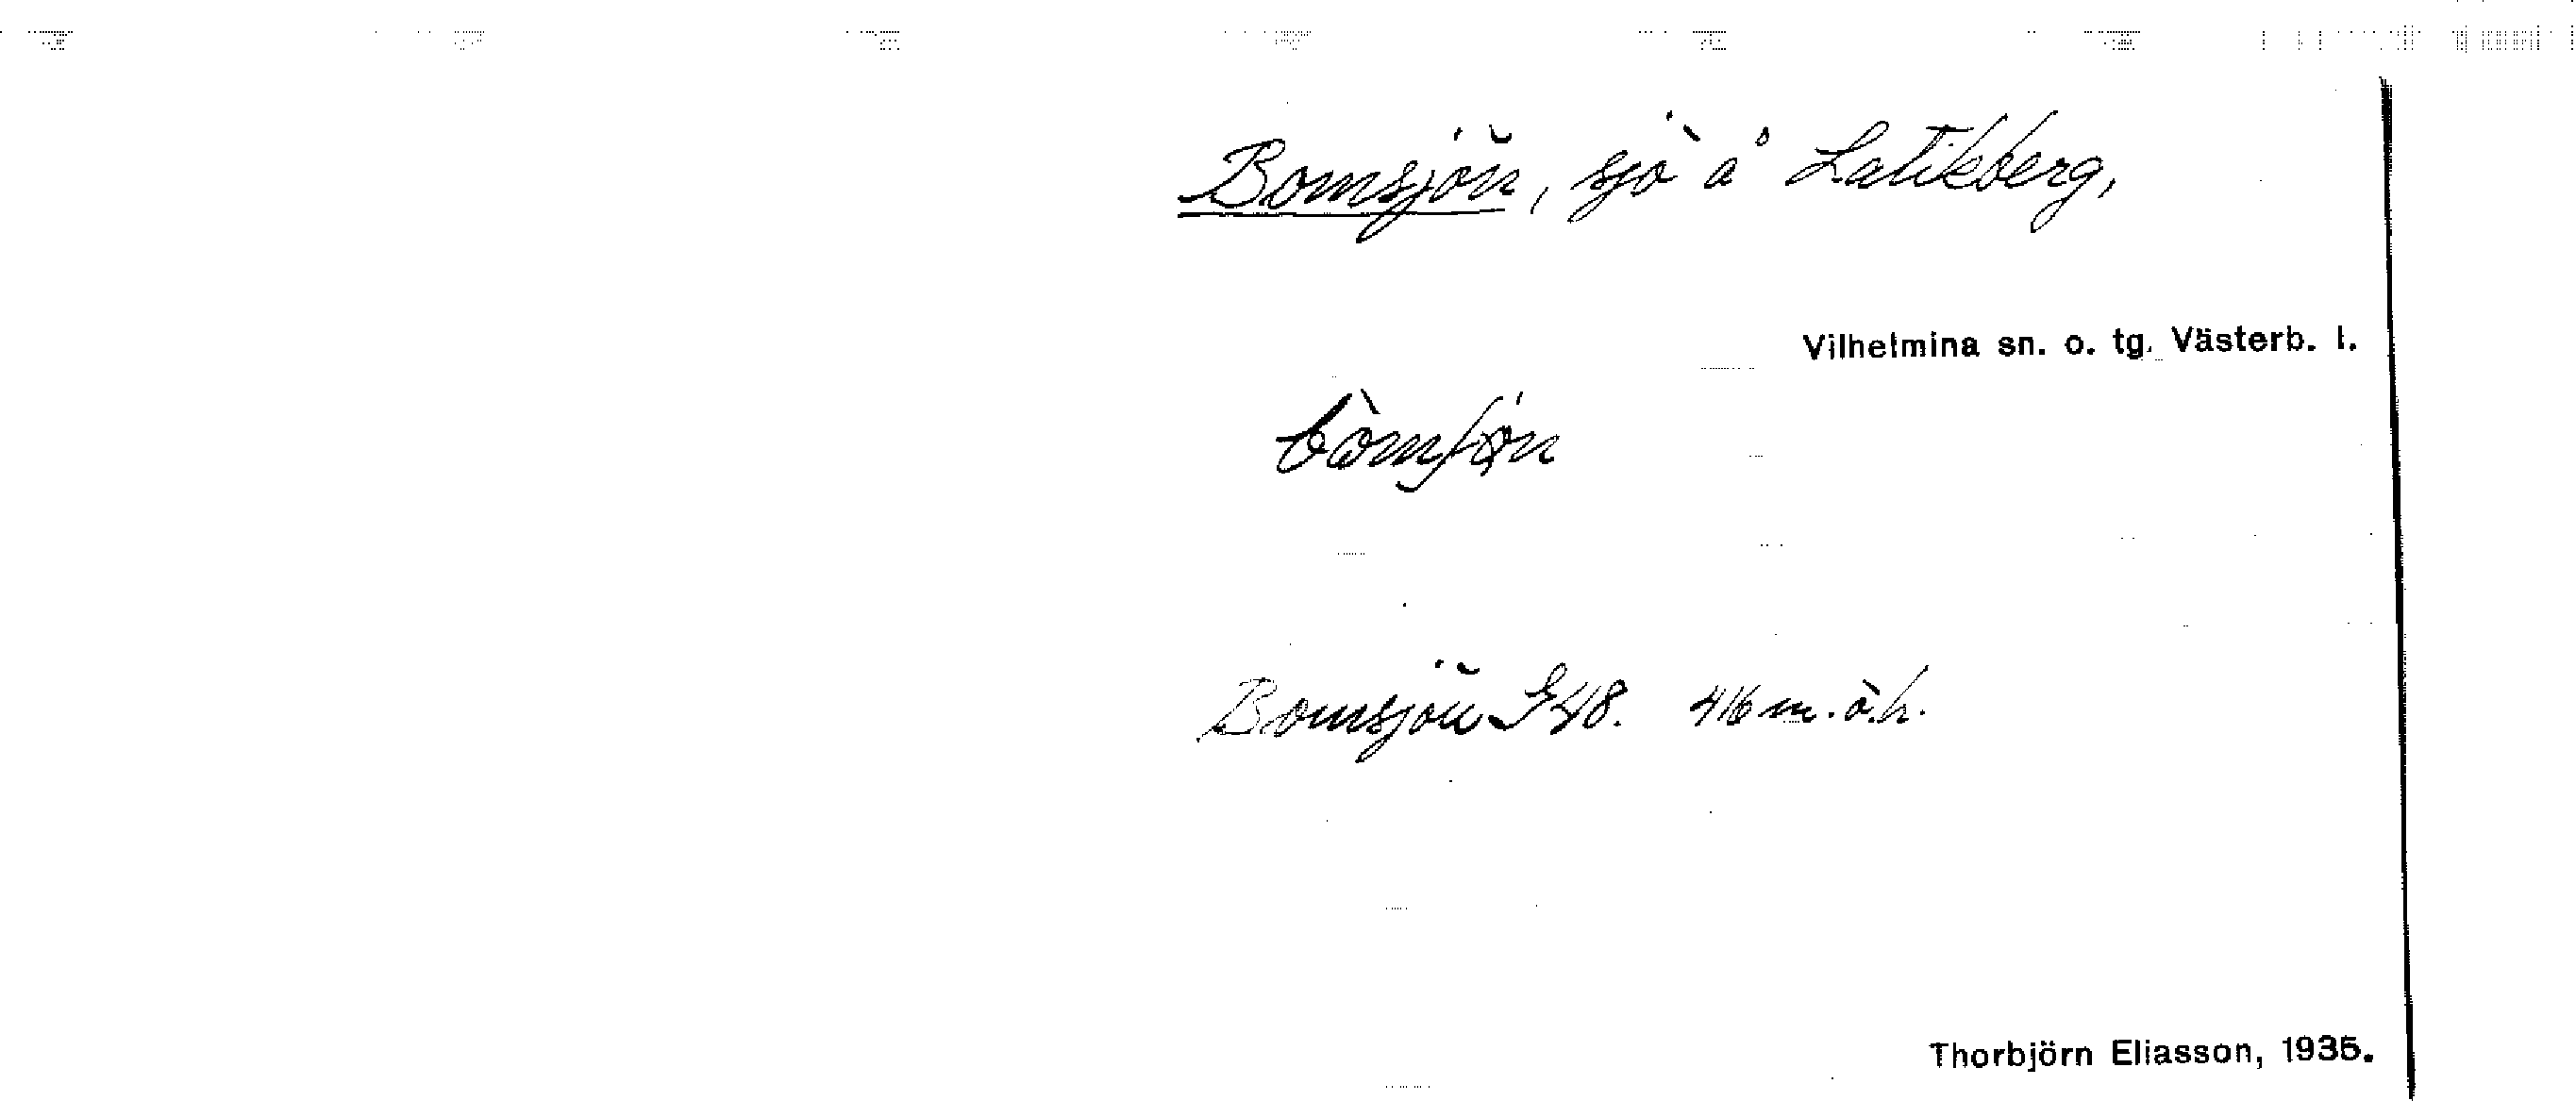 Bomsjön, sjö å Latikberg,
Vilhelmina sn. o. tg. Västerb. l.
bòmʃø̀n
Bomsjön G48. 416 m. ö. h.
Thorbjörn Eliasson, 1935.